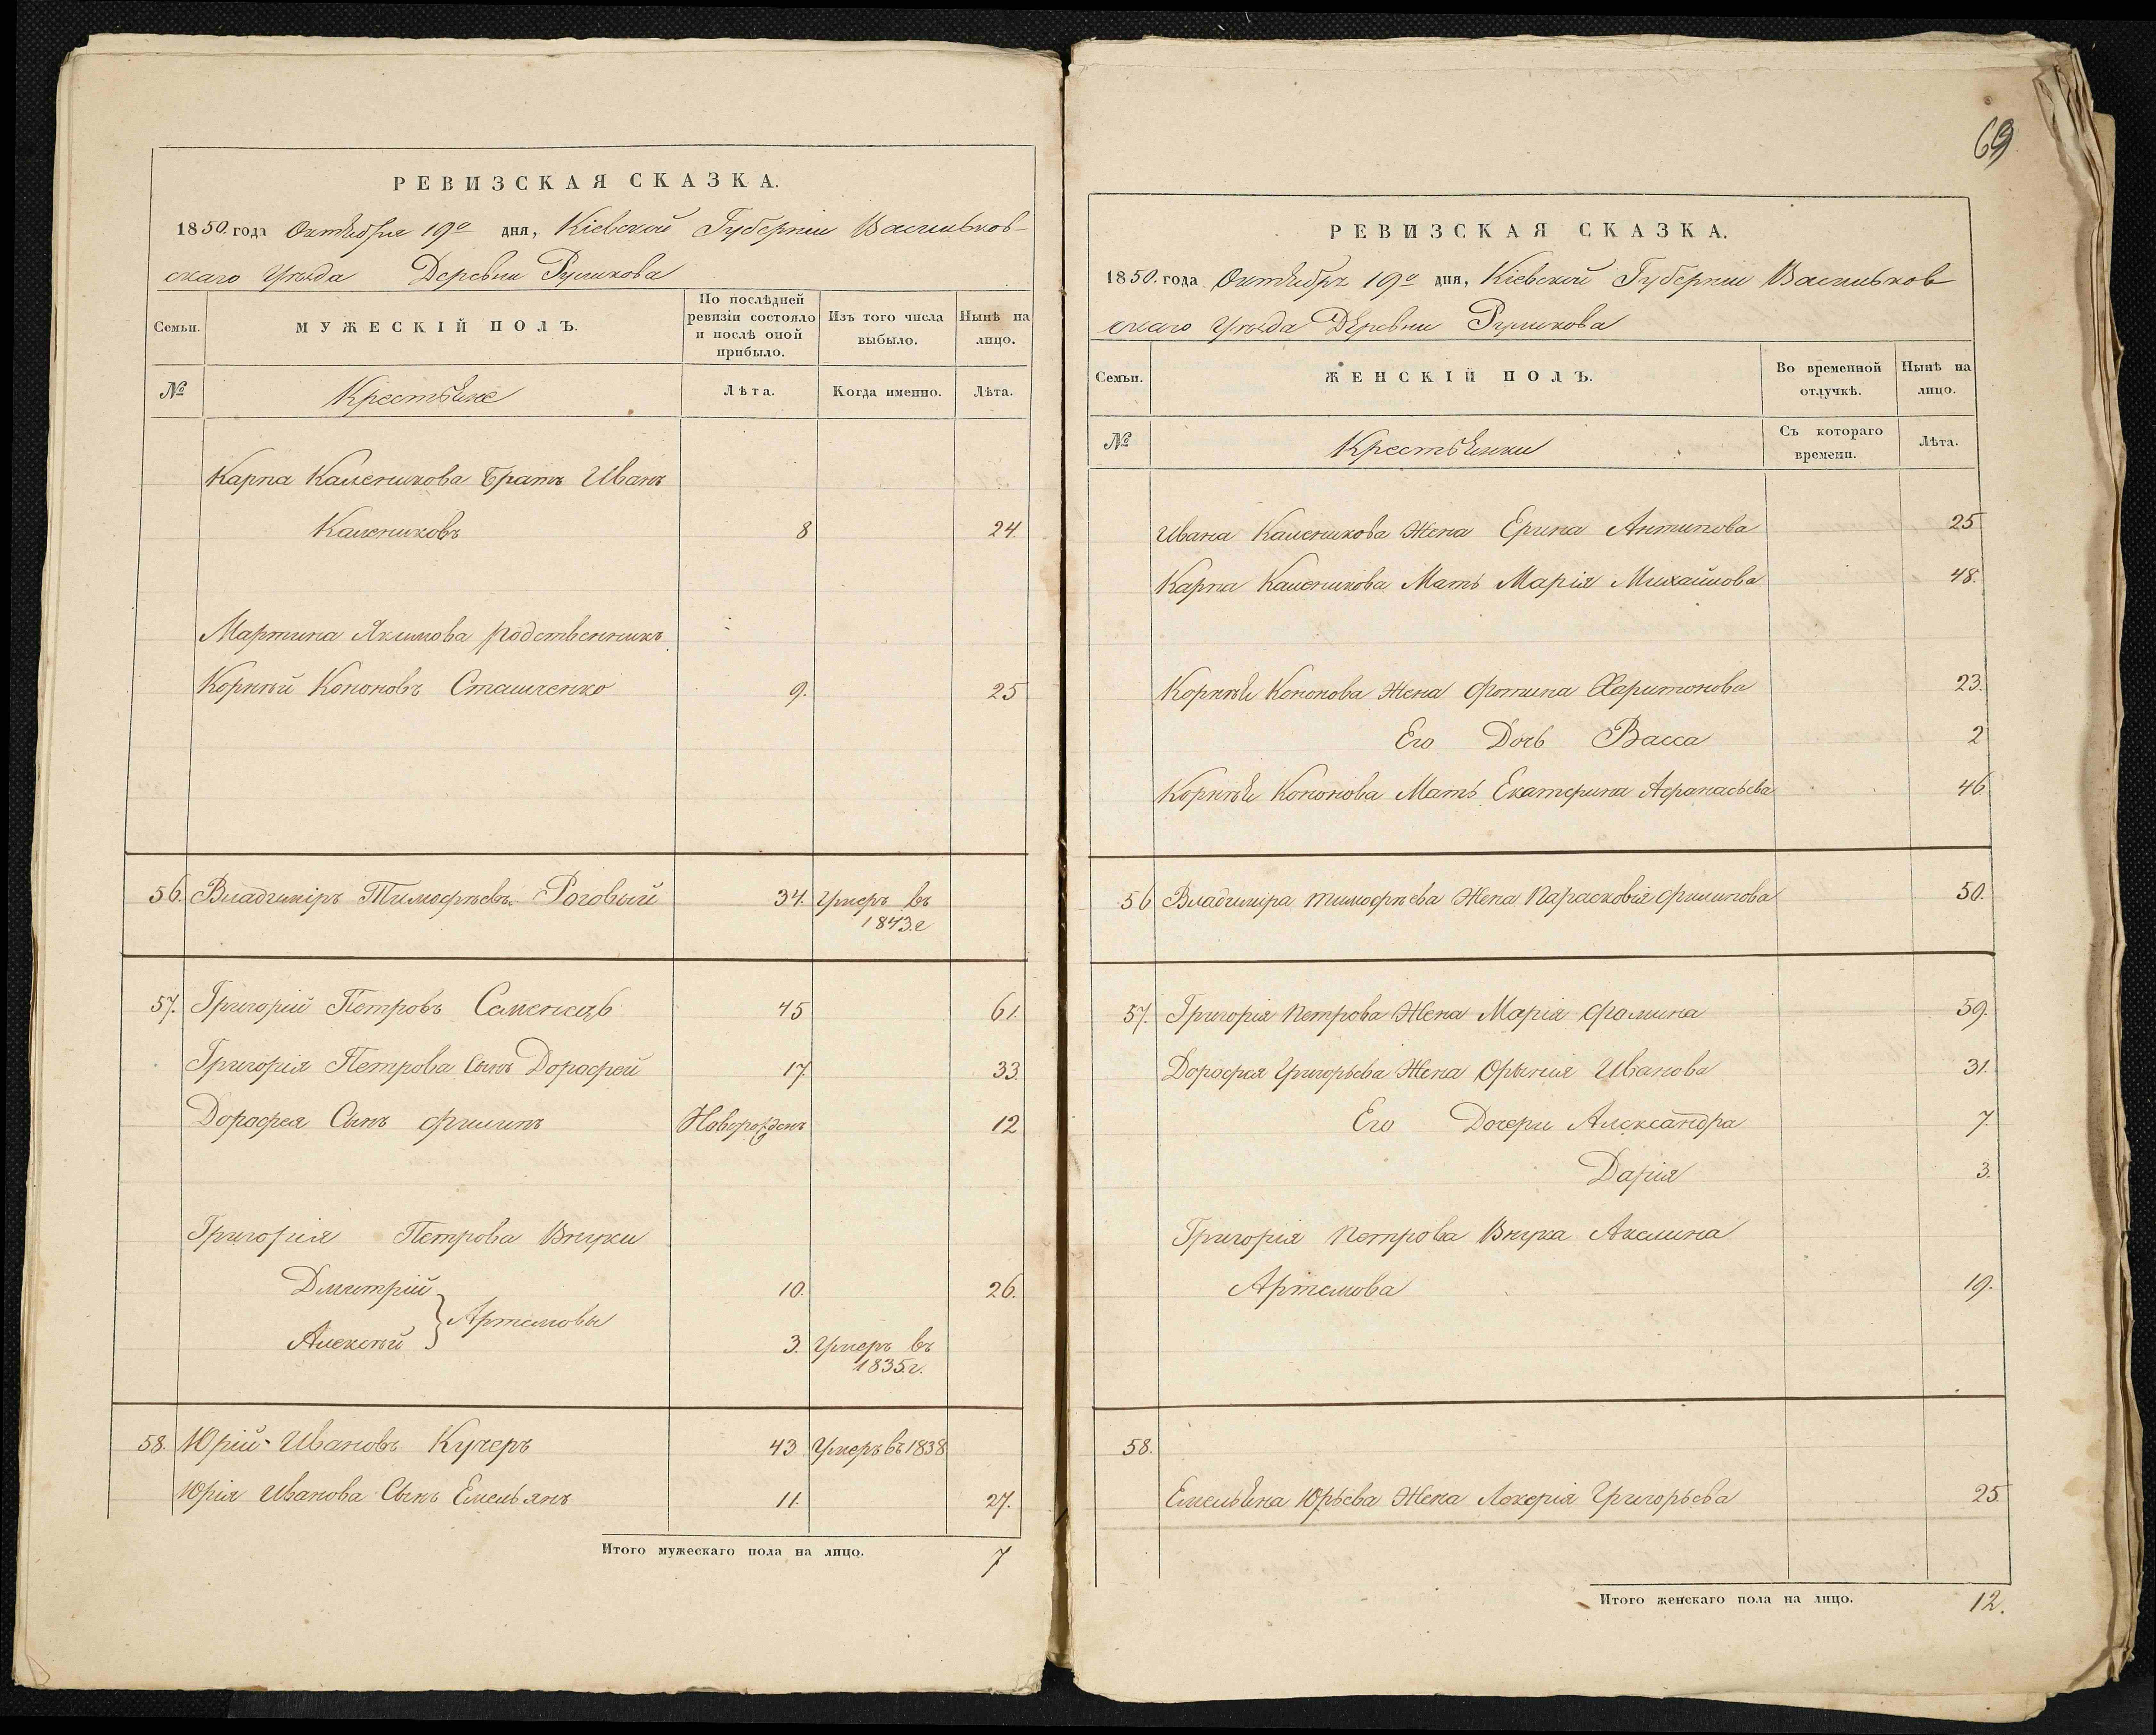 РЕВИЗСКАЯ СКАЗКА.
1850. года Октября 19го дня, Кіевской Губерніи Васильков-
скаго Уѣзда Деревни Руликова
Семьи.
МУЖЕСКІЙ ПОЛЪ.
По послѣдней ревизіи состояло и послѣ оной прибыло.
Изъ того числа выбыло.
Нынѣ на лицо.
№
Крестьяне
Лѣта.
Когда именно.
Лѣта.
Карпа Калениково Братъ Иванъ
Калениковъ 8 24.
Мартина Якимова родственникъ
Корнѣй Кононовъ Сташченко 9. 25
56. Владиміръ Тимофѣевъ Роговый 34. Умеръ въ
1843.г
57. Григорій Петровъ 45 61.
Григорія Петрова Сынъ Дорофей 17. 33.
Дорофея Сынъ Филипъ Новорожденъ 12
Григорія Петрова Внуки
Дмитрій 10. 26.
} Артемовы
Алексѣй 3. Умеръ въ
1835.г.
58. Юрій Ивановъ Кучеръ 43 Умеръ въ 1838
Юрія Иванова Сынъ Емельянъ 11. 27.
Итого мужескаго пола на лицо. 7
69
РЕВИЗСКАЯ СКАЗКА.
1850. года Октября 19го дня, Кіевской Губерніи Васильков
скаго Уѣзда Деревни Руликова
Семьи.
ЖЕНСКІЙ ПОЛЪ.
Во временной отлучкѣ.
Нынѣ на лицо.
№
Крестьянки
Съ котораго времени.
Лѣта.
Ивана Каленикова Жена Ерина Антипова 25
Карпа Каленикова Мать Марія Михайлова 48.
Корнѣя Кононова Жена Фотина Харитонова 23.
Его Дочь Васса 2
Корнѣя Кононова Мать Екатерина Афанасьева 46
56 Владиміра Тимофѣева Жена Парасковія Филипова 50.
57. Григорія Петрова Жена Марія Фомина 59.
Дорофея Григорьева Жена Ориния Иванова 31.
Его Дочери Александра 7.
Дарія 3.
Григорія Петрова Внука Акелина
Артемова 19.
58.
Емельяна Юрьева Жена Локерія Григорьева 25
Итого женскаго пола на лицо. 12.